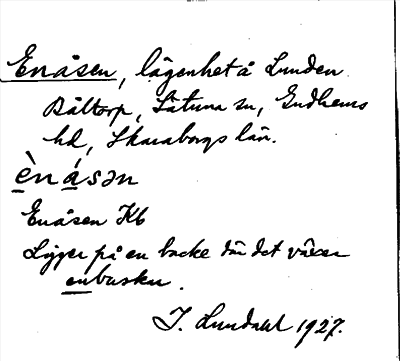 Enåsen, lägenhet å Lunden
Bältorp, Sätuna sn, Gudhems
hd, Skaraborgs län.
ènásən
Enåsen Kb
Ligger på en backe där det växer
enbuskar.
J. Lundahl 1927.